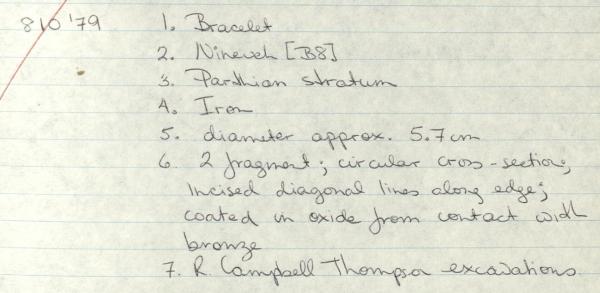 810 '79 1. Bracelet
2. Nineveh [B8]
3. Parthian stratum
4. Iron
5. diameter approx. 5.7 cm
6. 2 fragment; circular cross-section;
incised diagonal lines along edge;
coated in oxide from contact with
bronze
7. R. Campbell Thompson excavations.